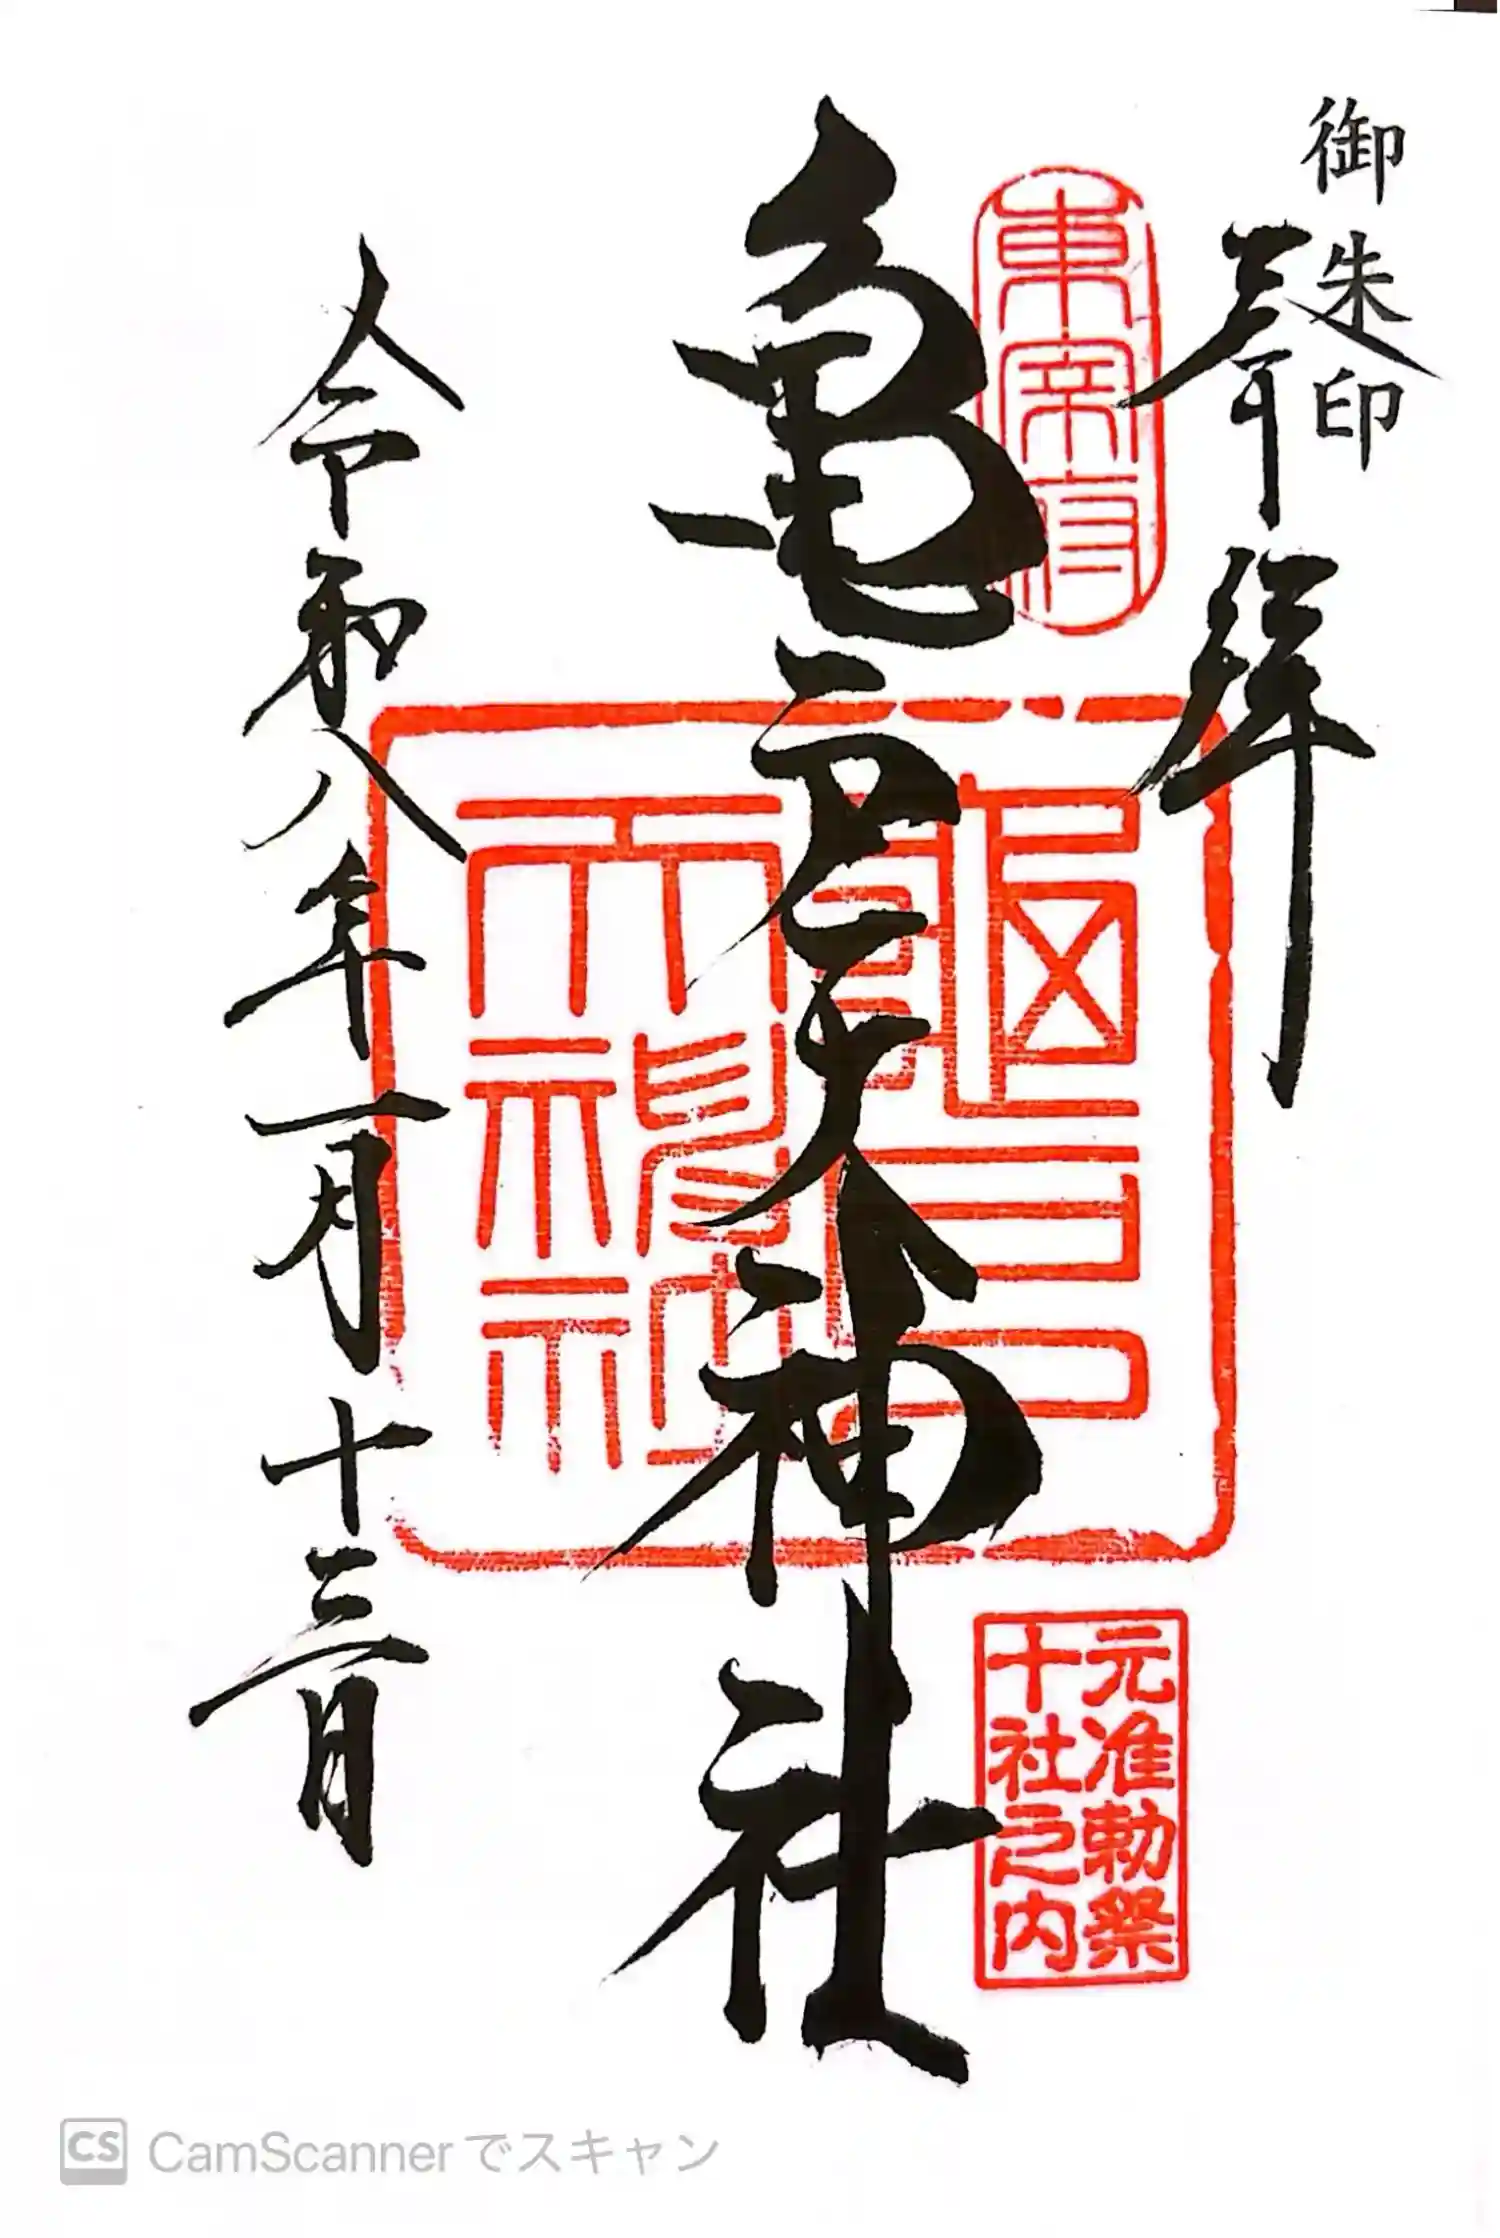 御朱印
奉拝
東帝府
亀戸天神社
元准勅祭
十社之内
令和八年一月十三日
CS CamScannerでスキャン